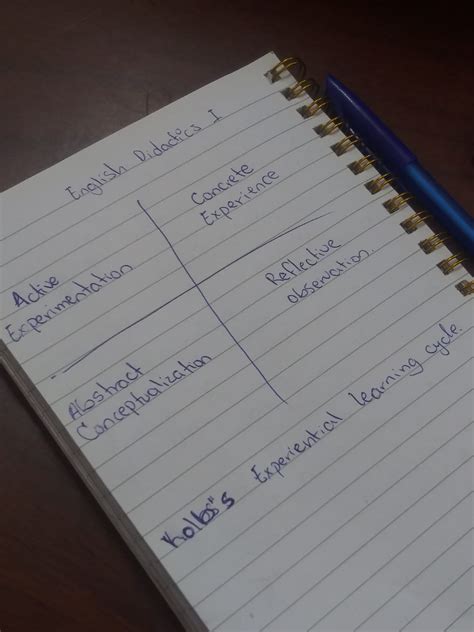 English Didactics I
Concrete
Experience
Active
Experimentation
Reflective
observation.
Abstract
Conceptualization
Kolbs"s Experiential learning cycle.